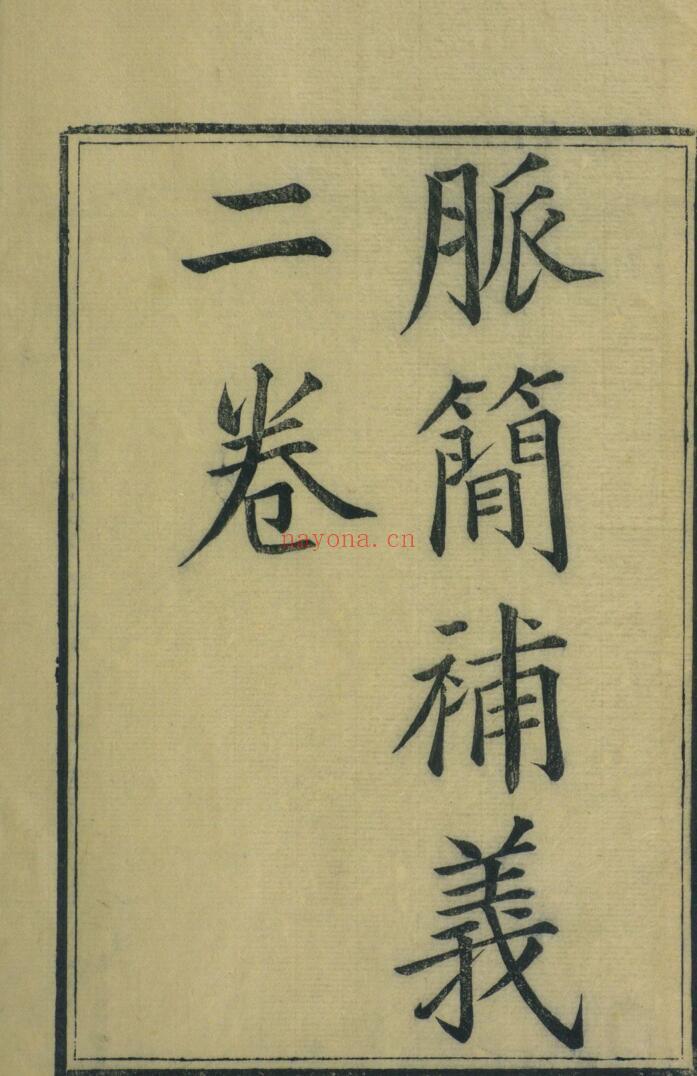 脈簡補義
二卷
nayona.cn